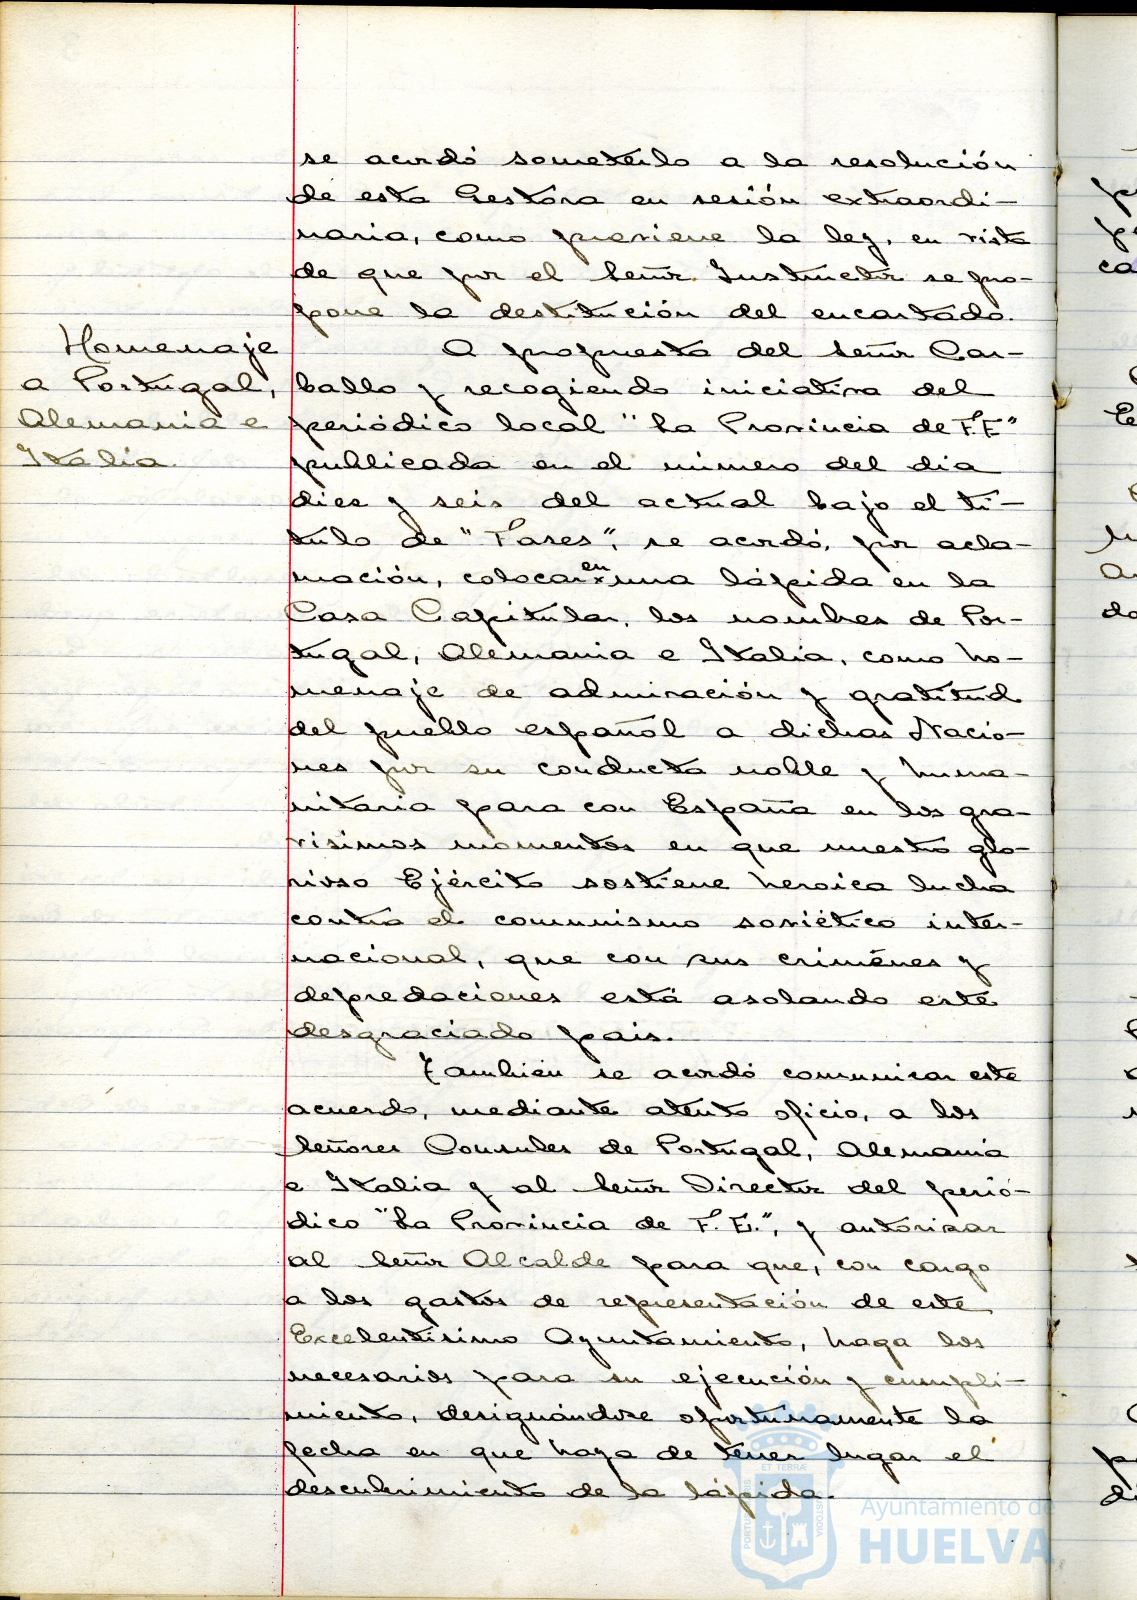 se acordó someterlo a la resolución
de esta Gestora en sesión extraordi-
naria, como previene la ley, en vista
de que por el Señor Instructor se pro-
pone la destitución del encartado.
Homenaje
a Portugal,
Alemania e
Italia.
A propuesta del Señor Car-
ballo y recogiendo iniciativa del
periódico local "La Provincia de F.E"
publicada en el número del dia
diez y seis del actual bajo el tí-
tulo de "Pares", se acordó, por acla-
mación, colocar en una lápida en la
Casa Capitular, los nombres de Por-
tugal, Alemania e Italia, como ho-
menaje de admiración y gratitud
del pueblo español a dichas Nacio-
nes por su conducta noble y huma-
nitaria para con España en los gra-
visimos momentos en que nuestro glo-
rioso Ejército sostiene heroica lucha
contra el comunismo soviético inter-
nacional, que con sus crimenes y
depredaciones está asolando este
desgraciado pais.
También se acordó comunicar este
acuerdo, mediante atento oficio, a los
Señores Consules de Portugal, Alemania
e Italia y al Señor Director del perió-
dico "La Provincia de F. E.", y autorizar
al Señor Alcalde para que, con cargo
a los gastos de representación de este
Excelentísimo Ayuntamiento, haga los
necesarios para su ejecución y cumpli-
miento, designándose oportunamente la
fecha en que haya de tener lugar el
descubrimiento de la lápida.
Ayuntamiento de
HUELVA